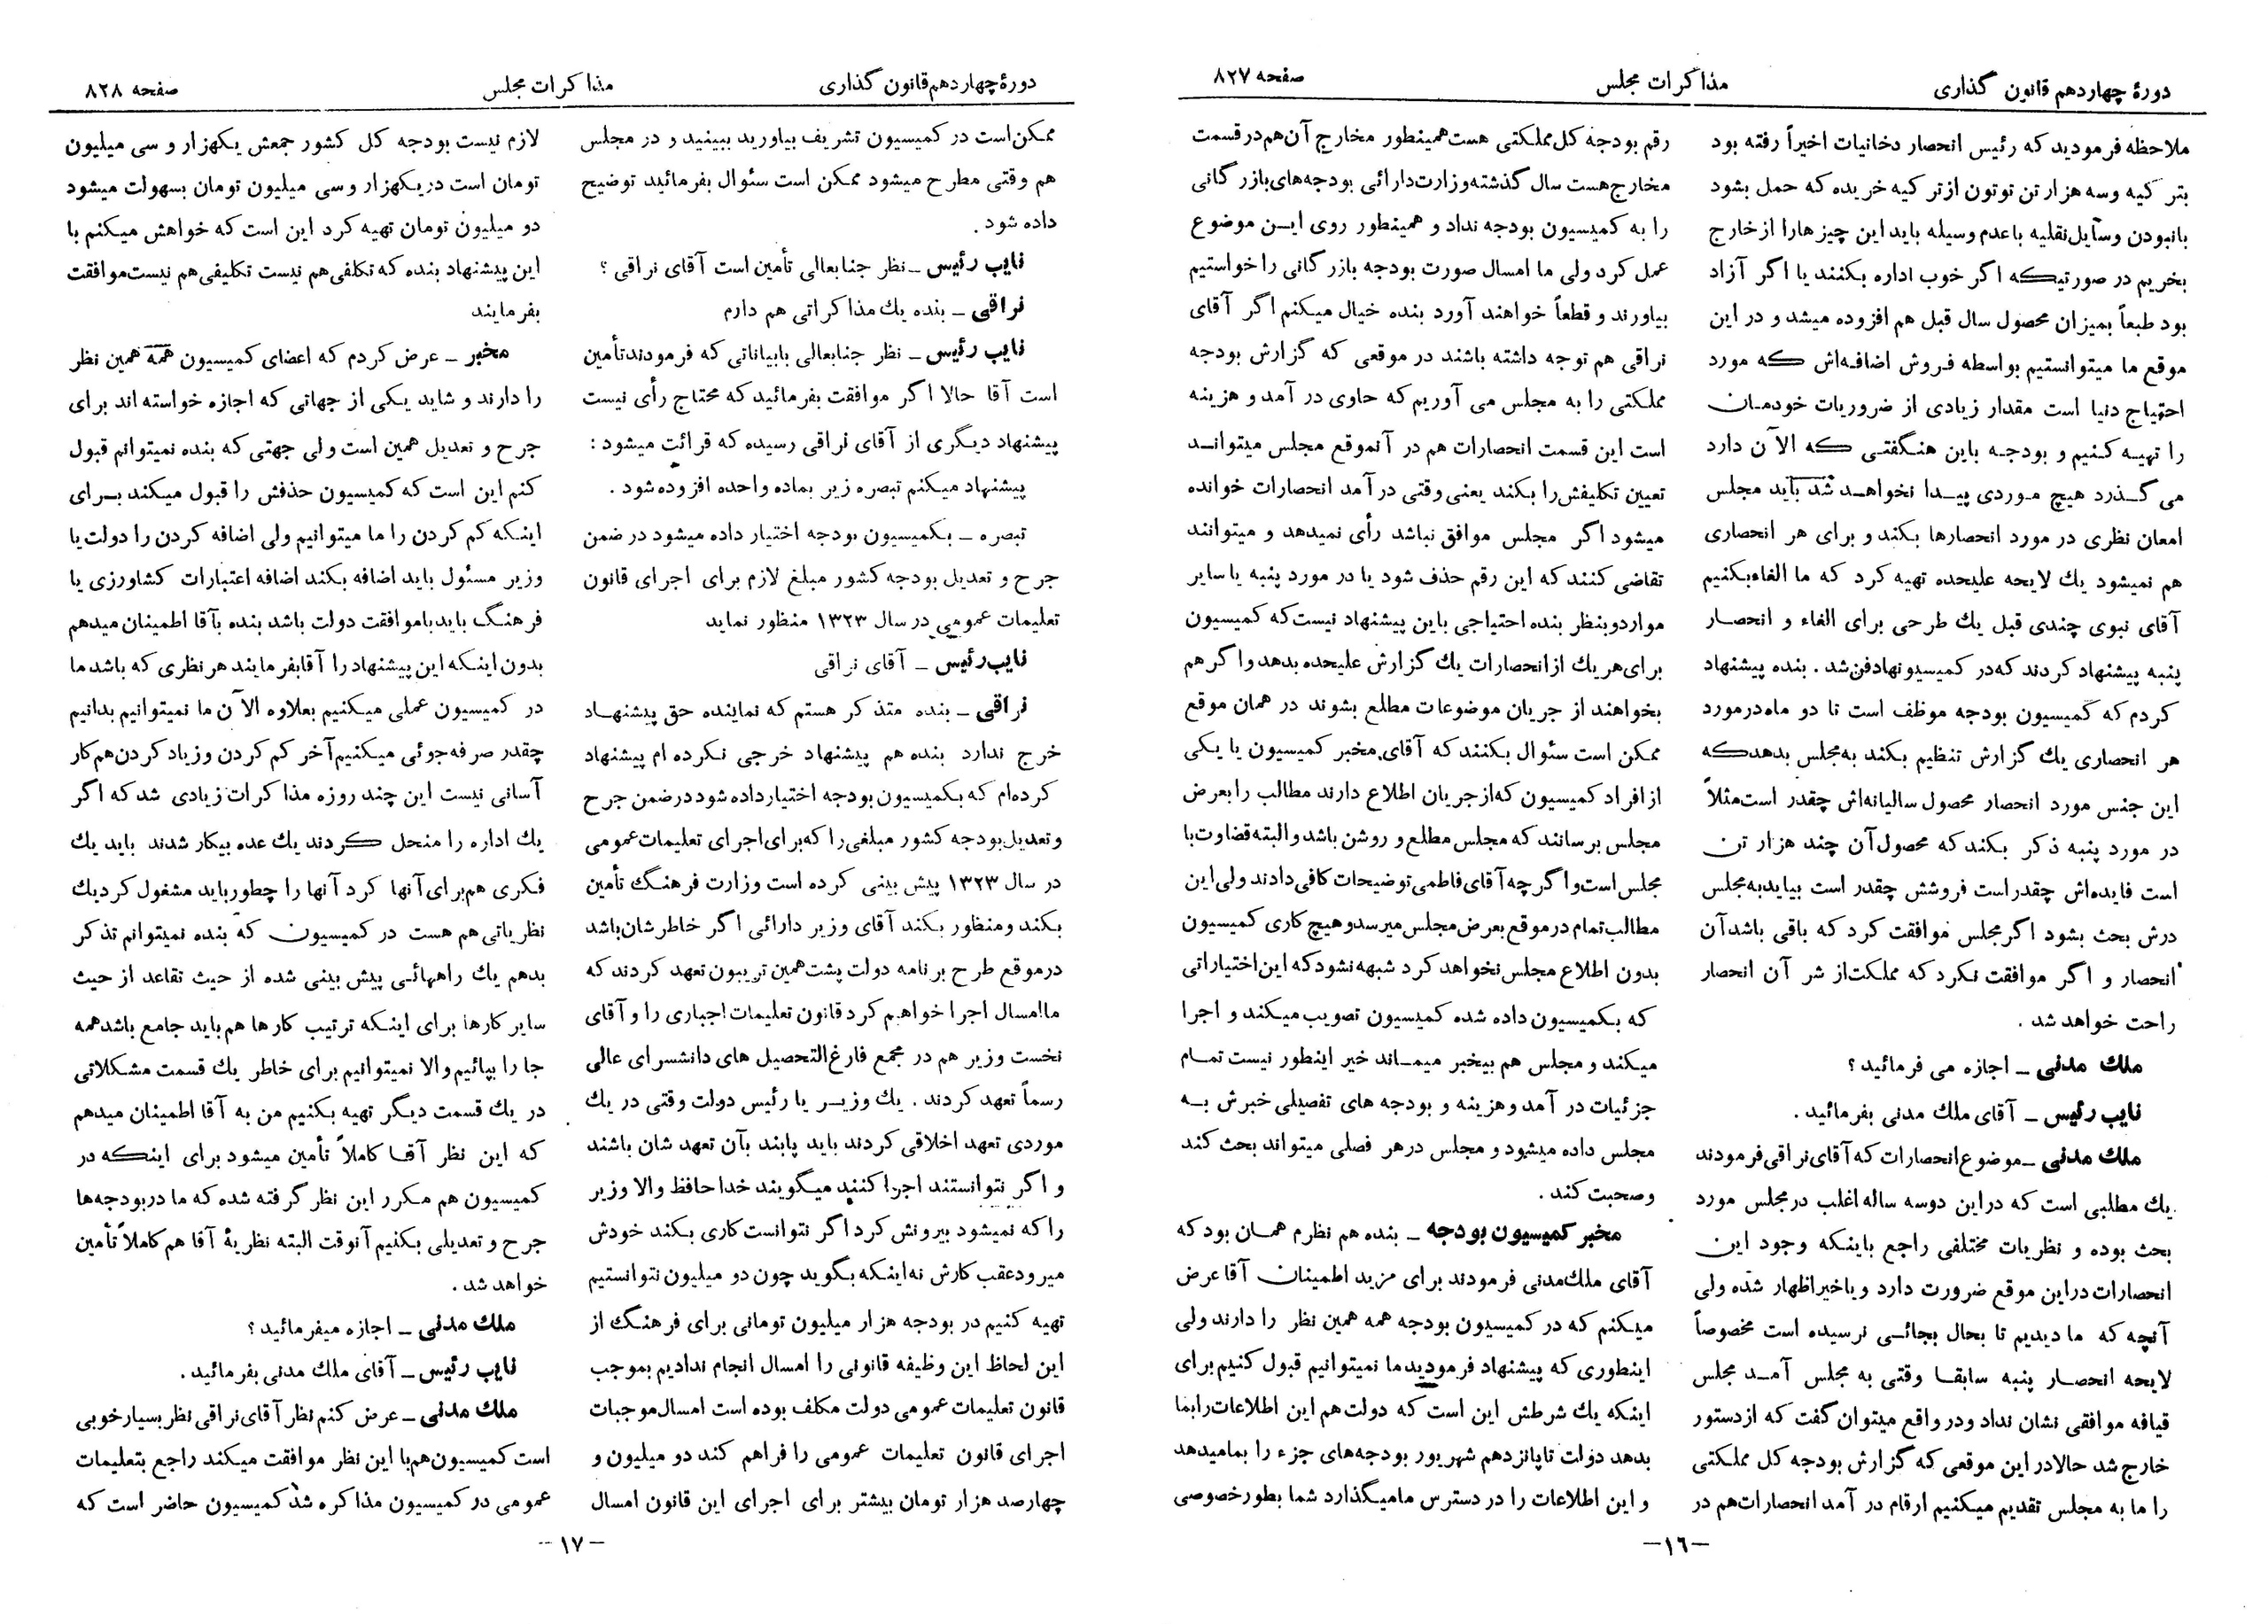 دورهٔ چهاردهم قانون گذاری
مذاکرات مجلس
صفحه ۸۲۷
ملاحظه فرمودید که رئیس انحصار دخانیات اخیراً رفته بود
بتر کیه وسه هزار تن توتون ازتر کیه خریده که حمل بشود
بانبودن وسایل نقلیه باعدم وسیله باید این چیزهارا ازخارج
بخریم در صورتیکه اگر خوب اداره بکنند یا اگر آزاد
بود طبعاً بمیزان محصول سال قبل هم افزوده میشد و در این
موقع ما میتوانستیم بواسطه فروش اضافه‌اش که مورد
احتیاج دنیا است مقدار زیادی از ضروریات خودمان
را تهیه کنیم و بودجه باین هنگفتی که الآن دارد
می گذرد هیچ موردی پیدا نخواهد شد باید مجلس
امعان نظری در مورد انحصارها بکند و برای هر انحصاری
هم نمیشود یك لایحه علیحده تهیه کرد که ما الغاء بکنیم
آقای نبوی چندی قبل یك طرحی برای الغاء و انحصار
پنبه پیشنهاد کردند که در کمیسیونهاد فن شد . بنده پیشنهاد
کردم که کمیسیون بودجه موظف است تا دو ماه درمورد
هر انحصاری یك گزارش تنظیم بکند به مجلس بدهد که
این جنس مورد انحصار محصول سالیانه‌اش چقدر است مثلاً
در مورد پنبه ذکر بکند که محصول آن چند هزار تن
است فایده‌اش چقدر است فروشش چقدر است بیاید به مجلس
درش بحث بشود اگر مجلس موافقت کرد که باقی باشد آن
انحصار و اگر موافقت نکرد که مملکت از شر آن انحصار
راحت خواهد شد .
ملك مدنی – اجازه می فرمائید ؟
نایب رئیس – آقای ملك مدنی بفرمائید .
ملك مدنی – موضوع انحصارات که آقای نراقی فرمودند
یك مطلبی است که دراین دوسه ساله اغلب درمجلس مورد
بحث بوده و نظریات مختلفی راجع باینکه وجود این
انحصارات دراین موقع ضرورت دارد ویاخیراظهار شده ولی
آنچه که ما دیدیم تا بحال بجائی نرسیده است مخصوصاً
لایحه انحصار پنبه سابقا وقتی به مجلس آمد مجلس
قیافه موافقی نشان نداد ودر واقع میتوان گفت که ازدستور
خارج شد حالا در این موقعی که گزارش بودجه کل مملکتی
را ما به مجلس تقدیم میکنیم ارقام در آمد انحصارات هم در
رقم بودجه کل مملکتی هست همینطور مخارج آن هم در قسمت
مخارج هست سال گذشته وزارت دارائی بودجه‌های بازرگانی
را به کمیسیون بودجه نداد و همینطور روی این موضوع
عمل کرد ولی ما امسال صورت بودجه بازرگانی را خواستیم
بیاورند و قطعاً خواهند آورد بنده خیال میکنم اگر آقای
نراقی هم توجه داشته باشند در موقعی که گزارش بودجه
مملکتی را به مجلس می آوریم که حاوی در آمد و هزینه
است این قسمت انحصارات هم در آنموقع مجلس میتواند
تعیین تکلیفش را بکند یعنی وقتی در آمد انحصارات خوانده
میشود اگر مجلس موافق نباشد رأی نمیدهد و میتوانند
تقاضی کنند که این رقم حذف شود یا در مورد پنبه یا سایر
موارد و بنظر بنده احتیاجی باین پیشنهاد نیست که کمیسیون
برای هر یك از انحصارات یك گزارش علیحده بدهد واگر هم
بخواهند از جریان موضوعات مطلع بشوند در همان موقع
ممکن است سئوال بکنند که آقای مخبر کمیسیون یا یکی
از افراد کمیسیون که از جریان اطلاع دارند مطالب را بعرض
مجلس برسانند که مجلس مطلع و روشن باشد والبته قضاوت با
مجلس است و اگر چه آقای فاطمی توضیحات کافی دادند ولی این
مطالب تمام در موقع بعرض مجلس میرسد و هیچ کاری کمیسیون
بدون اطلاع مجلس نخواهد کرد شبهه نشود که این اختیاراتی
که بکمیسیون داده شده کمیسیون تصویب میکند و اجرا
میکند و مجلس هم بیخبر میماند خیر اینطور نیست تمام
جزئیات در آمد وهزینه و بودجه های تفصیلی خبرش به
مجلس داده میشود و مجلس درهر فصلی میتواند بحث کند
وصحبت کند .
مخبر کمیسیون بودجه – بنده هم نظرم همان بود که
آقای ملك مدنی فرمودند برای مزید اطمینان آقا عرض
میکنم که در کمیسیون بودجه همه همین نظر را دارند ولی
اینطوری که پیشنهاد فرمودید ما نمیتوانیم قبول کنیم برای
اینکه یك شرطش این است که دولت هم این اطلاعات را بما
بدهد دولت تا پانزدهم شهریور بودجه‌های جزء را بما میدهد
و این اطلاعات را در دسترس ما میگذارد شما بطور خصوصی
–۱۶–
دورهٔ چهاردهم قانون گذاری
مذاکرات مجلس
صفحه ۸۲۸
ممکن است در کمیسیون تشریف بیاورید ببینید و در مجلس
هم وقتی مطرح میشود ممکن است سئوال بفرمائید توضیح
داده شود .
نایب رئیس – نظر جنابعالی تأمین است آقای نراقی ؟
نراقی – بنده یك مذاکراتی هم دارم
نایب رئیس – نظر جنابعالی بابیاناتی که فرمودند تأمین
است آقا حالا اگر موافقت بفرمائید که محتاج رأی نیست
پیشنهاد دیگری از آقای نراقی رسیده که قرائت میشود :
پیشنهاد میکنم تبصره زیر بماده واحده افزوده شود .
تبصره – بکمیسیون بودجه اختیار داده میشود در ضمن
جرح و تعدیل بودجه کشور مبلغ لازم برای اجرای قانون
تعلیمات عمومی در سال ۱۳۲۳ منظور نماید
نایب رئیس – آقای نراقی
نراقی – بنده متذکر هستم که نماینده حق پیشنهاد
خرج ندارد بنده هم پیشنهاد خرجی نکرده ام پیشنهاد
کرده‌ام که بکمیسیون بودجه اختیار داده شود در ضمن جرح
و تعدیل بودجه کشور مبلغی را که برای اجرای تعلیمات عمومی
در سال ۱۳۲۳ پیش بینی کرده است وزارت فرهنگ تأمین
بکند ومنظور بکند آقای وزیر دارائی اگر خاطرشان باشد
درموقع طرح برنامه دولت پشت همین تریبون تعهد کردند که
ما امسال اجرا خواهم کرد قانون تعلیمات اجباری را و آقای
نخست وزیر هم در مجمع فارغ‌التحصیل های دانشسرای عالی
رسماً تعهد کردند . یك وزیر یا رئیس دولت وقتی در یك
موردی تعهد اخلاقی کردند باید پابند بآن تعهد شان باشند
و اگر نتوانستند اجرا کنند میگویند خدا حافظ والا وزیر
را که نمیشود بیرونش کرد اگر نتوانست کاری بکند خودش
میرود عقب کارش نه اینکه بگوید چون دو میلیون نتوانستیم
تهیه کنیم در بودجه هزار میلیون تومانی برای فرهنگ از
این لحاظ این وظیفه قانونی را امسال انجام ندادیم بموجب
قانون تعلیمات عمومی دولت مکلف بوده است امسال موجبات
اجرای قانون تعلیمات عمومی را فراهم کند دو میلیون و
چهارصد هزار تومان بیشتر برای اجرای این قانون امسال
لازم نیست بودجه کل کشور جمعش یکهزار و سی میلیون
تومان است در یکهزار و سی میلیون تومان بسهولت میشود
دو میلیون تومان تهیه کرد این است که خواهش میکنم با
این پیشنهاد بنده که تکلفی هم نیست تکلیفی هم نیست موافقت
بفرمایند
مخبر – عرض کردم که اعضای کمیسیون همه همین نظر
را دارند و شاید یکی از جهاتی که اجازه خواسته اند برای
جرح و تعدیل همین است ولی جهتی که بنده نمیتوانم قبول
کنم این است که کمیسیون حذفش را قبول میکند برای
اینکه کم کردن را ما میتوانیم ولی اضافه کردن را دولت یا
وزیر مسئول باید اضافه بکند اضافه اعتبارات کشاورزی یا
فرهنگ باید باموافقت دولت باشد بنده بآقا اطمینان میدهم
بدون اینکه این پیشنهاد را آقا بفرمایند هر نظری که باشد ما
در کمیسیون عملی میکنیم بعلاوه الآن ما نمیتوانیم بدانیم
چقدر صرفه جوئی میکنیم آخر کم کردن و زیاد کردن هم کار
آسانی نیست این چند روزه مذاکرات زیادی شد که اگر
یك اداره را منحل کردند یك عده بیکار شدند باید یك
فکری هم برای آنها کرد آنها را چطور باید مشغول کرد یك
نظریاتی هم هست در کمیسیون که بنده نمیتوانم تذکر
بدهم یك راههائی پیش بینی شده از حیث تقاعد از حیث
سایر کارها برای اینکه ترتیب کارها هم باید جامع باشد همه
جا را بپائیم والا نمیتوانیم برای خاطر یك قسمت مشکلاتی
در یك قسمت دیگر تهیه بکنیم من به آقا اطمینان میدهم
که این نظر آقا کاملاً تأمین میشود برای اینکه در
کمیسیون هم مکرر این نظر گرفته شده که ما در بودجه‌ها
جرح و تعدیلی بکنیم آنوقت البته نظریهٔ آقا هم کاملاً تأمین
خواهد شد .
ملك مدنی – اجازه میفرمائید ؟
نایب رئیس – آقای ملك مدنی بفرمائید .
ملك مدنی – عرض کنم نظر آقای نراقی نظر بسیار خوبی
است کمیسیون هم با این نظر موافقت میکند راجع بتعلیمات
عمومی در کمیسیون مذاکره شد کمیسیون حاضر است که
–۱۷–